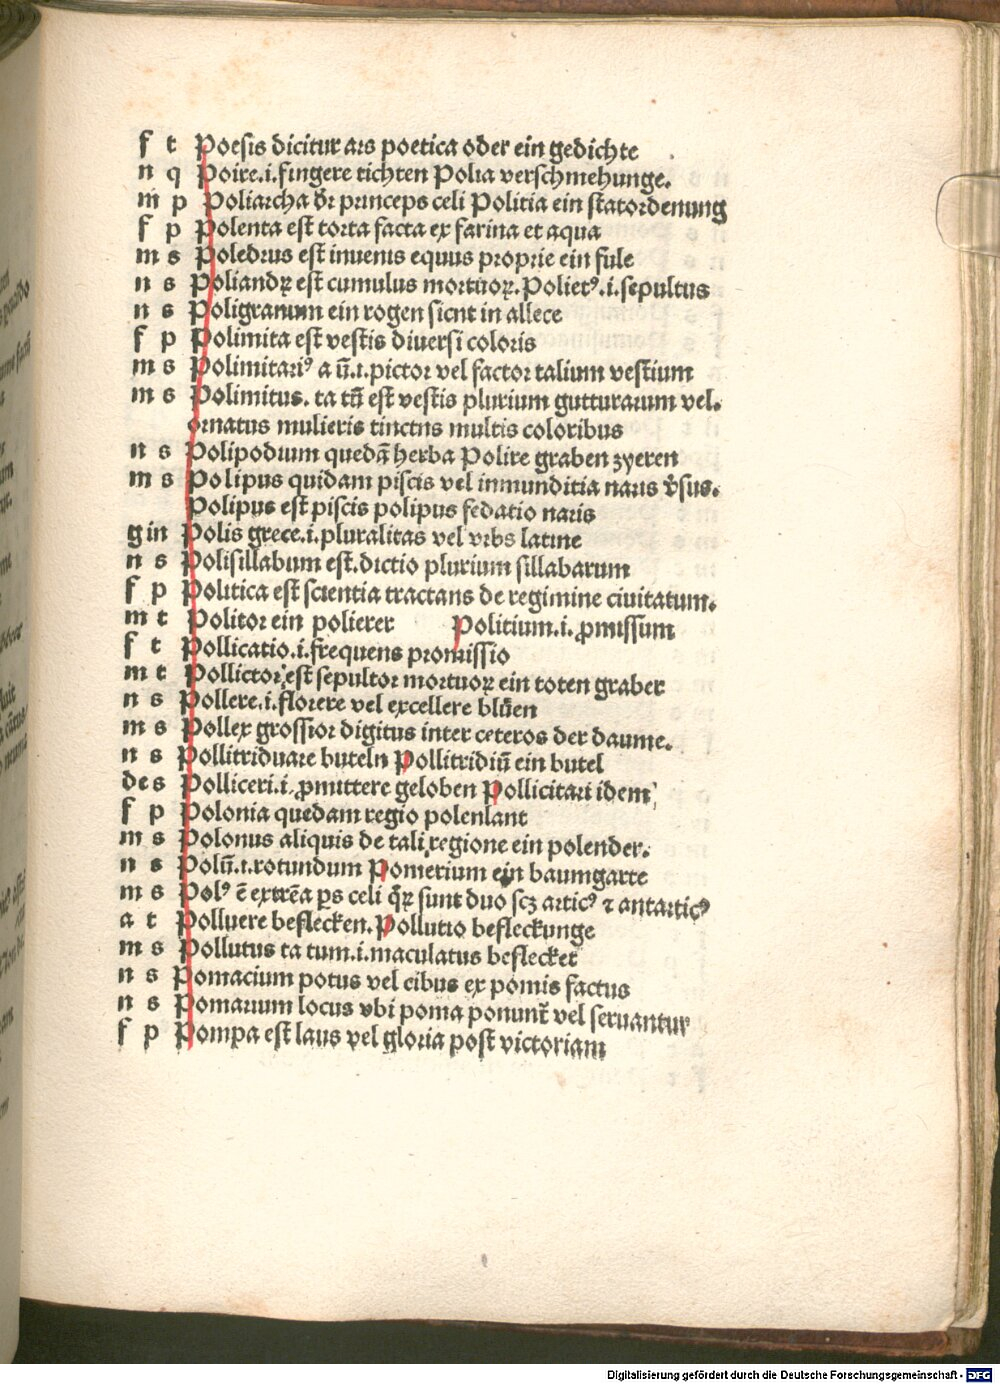 f t Poesis dicitur ars poetica oder ein gedichte
n q Poire.i.fingere tichten Polia verschmehunge.
m̄ p Poliarcha dr̄ princeps celi Politia ein statordenung
f p Polenta est torta facta ex farina et aqua
m s Poledrus est iuuenis equus proprie ein fule
n s Poliandꝝ est cumulus mortuoꝝ. Poliet⁹.i.sepultus
n s Poligranum ein rogen sicut in allece
f p Polimita est vestis diuersi coloris
m s Polimitari⁹ a ū.i.pictor vel factor talium vestium
m s Polimitus. ta tū est vestis plurium gutturarum vel.
ornatus mulieris tinctus multis coloribus
n s Polipodium quedā herba Polire graben zyeren
m s Polipus quidam piscis vel inmunditia naris v̄sus.
Polipus est piscis polipus fedatio naris
g in Polis grece.i.pluralitas vel vrbs latine
n s Polisillabum est.dictio plurium sillabarum
f p Politica est scientia tractans de regimine ciuitatum.
m t Politor ein polierer Politium.i.ꝓmissum
f t Pollicatio.i.frequens promissio
m t Pollictor est sepultor mortuoꝝ ein toten graber
n s Pollere.i.florere vel excellere blůen
m s Pollex grossior digitus inter ceteros der daume.
n s Pollitriduare buteln Pollitridiū ein butel
des Polliceri.i.ꝓmittere geloben Pollicitari idem
f p Polonia quedam regio polenlant
m s Polonus aliquis de tali regione ein polender.
n s Polū.i.rotundum Pomerium ein baumgarte
m s Pol⁹ ē extrēa ꝑs celi q̄ꝝ sunt duo scꝫ artic⁹ ⁊ antartic⁹
a t Polluere beflecken. Pollutio befleckunge
m s Pollutus ta tum.i.maculatus beflecket
n s Pomacium potus vel cibus ex pomis factus
n s Pomarium locus vbi poma ponunt̄ vel seruantur
f p Pompa est laus vel gloria post victoriam
Digitalisierung gefördert durch die Deutsche Forschungsgemeinschaft - DFG